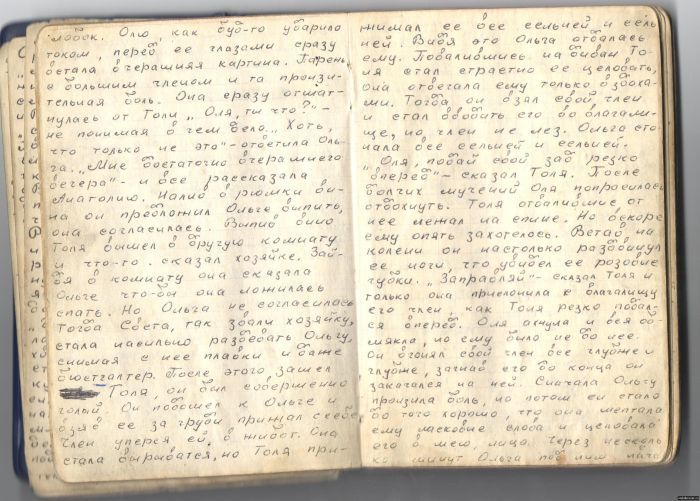 лобок. Олю, как буд-то ударило
током, перед ее глазами сразу
встала вчерашняя картина. Парень
с большим членом и та пронзи-
тельная боль. Она сразу отшат-
нулась от Толи „Оля, ти что?"-
не понимая в чем дело. „Хоть,
что только не это"- ответила Оль-
га. „Мне достаточно вчерашнего
вечера"- и все рассказала
Анатолию. Налив в рюмки ви-
на он предложил Ольге выпить,
она согласилась. Выпив вино
Толя вишел в другую комнату
и что-то сказал хозяйке. Зай-
дя в комнату она сказала
Ольге что-би она ложилась
спать. Но Ольга не согласилась
Тогда Света, так звали хозяйку,
стала насильно раздевать Ольгу,
снимая с нее плавки и даже
бюстгалтер. После этого, зашел
Толя, он был совершенно
голый. Он подошел к Ольге и
взяв ее за груди прижал к себе
Член уперся ей, в живот. Она
стала выриватся, но Толя при-
жимал ее все сельней и сель
ней. Видя это Ольга отдалась
ему. Повалившись на диван То-
ля стал страстно ее целовать,
она отвечала ему только вздоха-
ми. Тогда он взял свой член
и стал вводить его во влагали-
ще, но член не лез. Ольга сто-
нала все сельней и сельней.
„Оля, подай свой зад резко
вперед"- сказал Толя. После
долгих мучений Оля попросилась
отдохнуть. Толя отвалившие от
нее лежал на спине. Но вскоре
ему опять захотелось. Встав на
колени он настолько раздвинул
ее ноги, что увидел ее розовые
губки. „Заправляй"- сказал Толя и
только она прислонила к влагалищу
его член, как Толя резко подал-
ся вперед. Оля ахнула и вся об-
мякла, но ему было не до нее.
Он вгонял свой член все глубже и
глубже, загнав его до конца он
закачался на ней. Сначала Ольгу
пронзила боль, но потом ей стало
до того хорошо, что она шептала
ему ласковие слова и целовала
его в шею, лицо. Через несколь
ко минут Ольга под ним нача